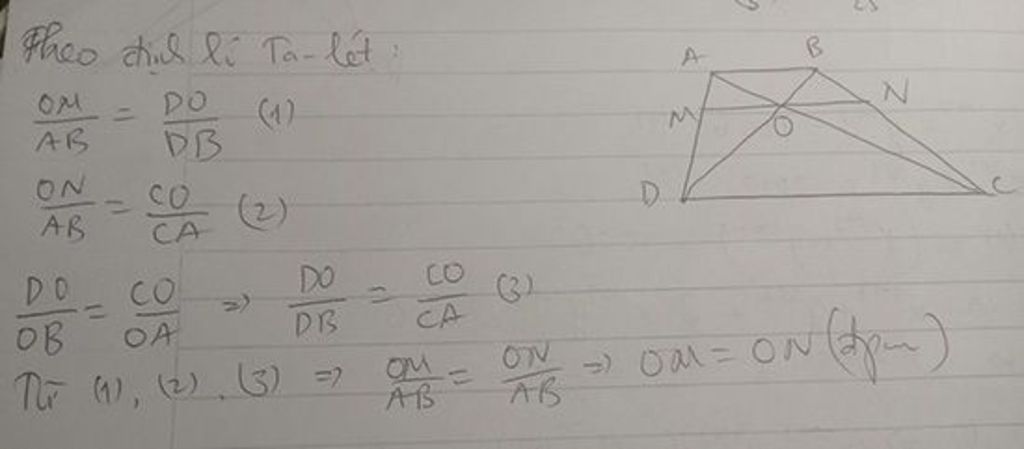 Theo định lí Ta-lét:
OM/AB = DO/DB (1)
ON/AB = CO/CA (2)
DO/OB = CO/OA => DO/DB = CO/CA (3)
Từ (1), (2), (3) => OM/AB = ON/AB => OM = ON (đpcm)
A B
M N
O
D C